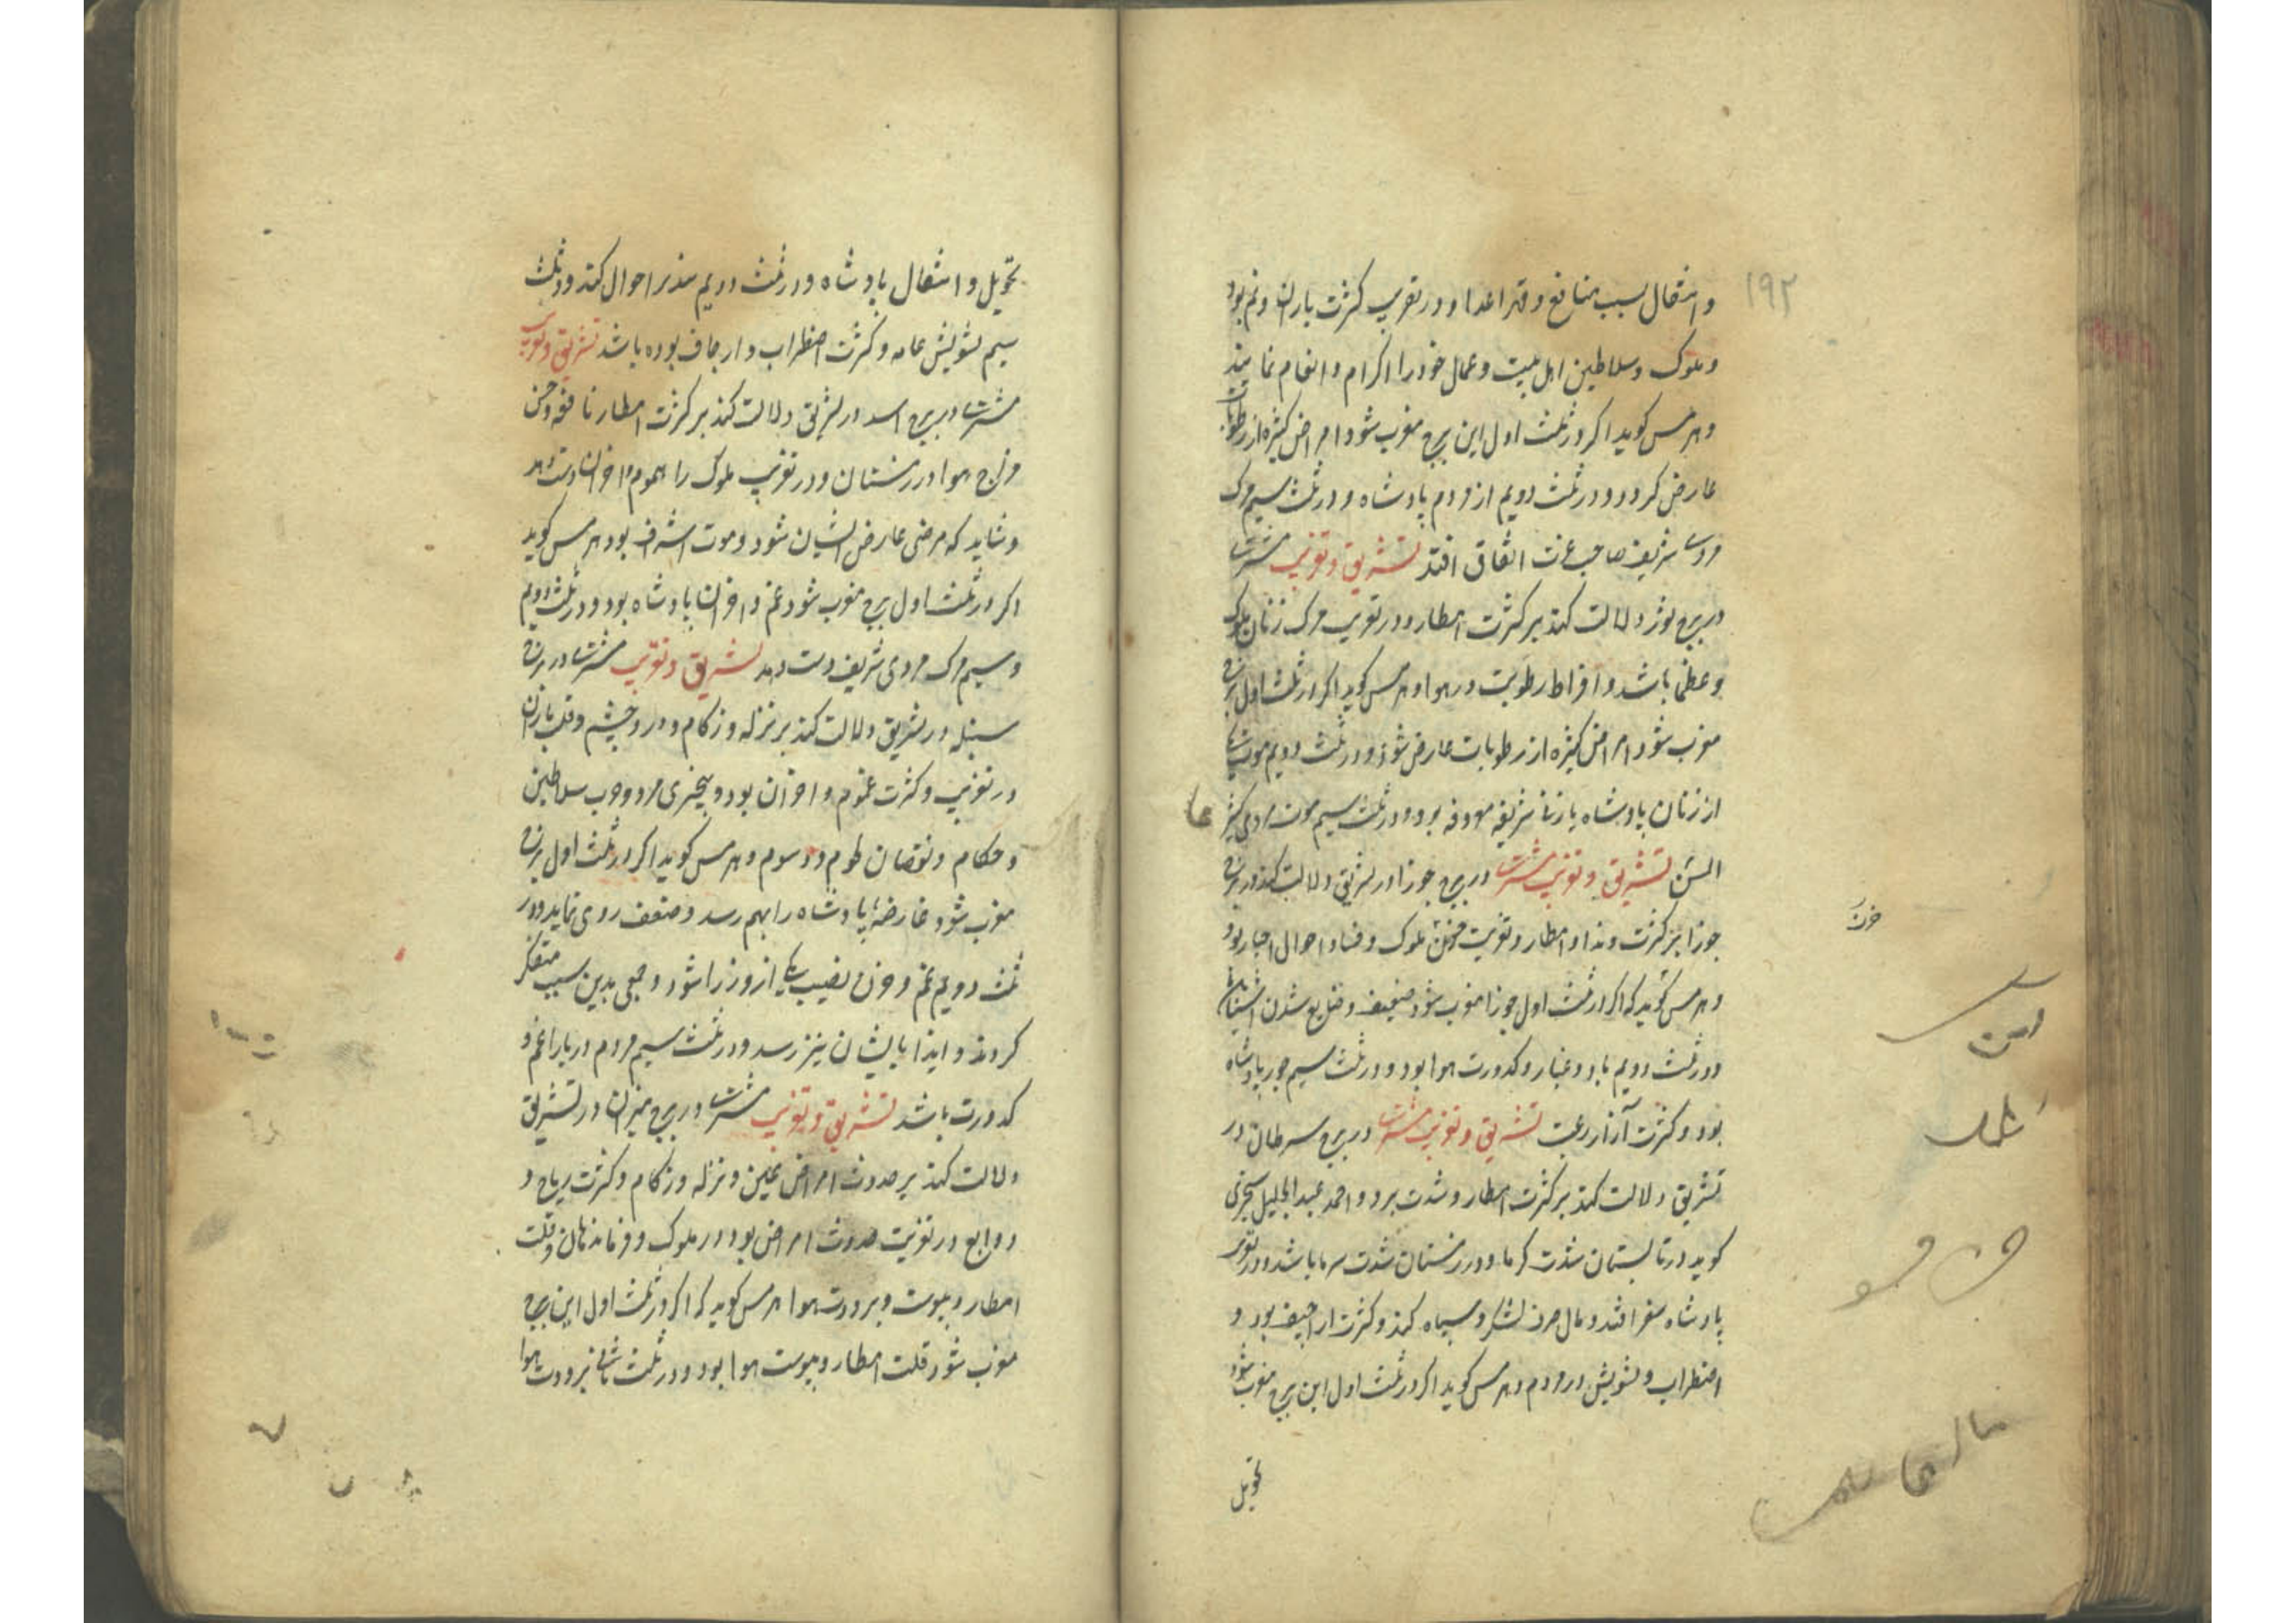 ۱۹۲
و انتقال بسبب منافع و قهر اعدا و در تغریب کثرت باران و نم بود
و ملوک و سلاطین اهل بیت و عمال خود را اکرام و انعام نمایند
و هرمس کوید اکر در ثلث اول این برج مغرب شود امراض کثیره از رطوبات
عارض کردد و در ثلث دویم از مردم پادشاه و در ثلث سیم مرک
مردی شریف صاحب عزت اتفاق افتد تشریق و تغریب مشتری
در برج ثور دلالت کند بر کثرت امطار و در تغریب مرک زنان ملوک
و عظما باشد و افراط رطوبت در هوا و هرمس کوید اکر در ثلث اول برج
مغرب شود امراض کثیره از رطوبات عارض شود و در ثلث دویم موت یکی
از زنان پادشاه یا زنان شریفه معروفه بود و در ثلث سیم موت مردی کثیر
السن تشریق و تغریب مشتری در برج جوزا در تشریق دلالت کند در برج
جوزا بر کثرت و نداو امطار و تغریب حزن ملوک و فساد احوال اخبار بود
و هرمس کوید که اکر در ثلث اول جوزا مغرب شود ضعیف و ضایع شدن
و در ثلث دویم باد و غبار و کدورت هوا بود و در ثلث سیم جور پادشاه
بود و کثرت آزار رعیت تشریق و تغریب مشتری در برج سرطان در
تشریق دلالت کند بر کثرت امطار و شدت برد و احمد عبدالجلیل سجزی
کوید در تابستان شدت کرما و در زمستان شدت سرما باشد و در تغریب
پادشاه سفر افتد و مال صرف لشکر و سپاه کند و کثرت اراجیف بود و
اضطراب و تشویش در مردم و هرمس کوید اکر در ثلث اول این برج مغرب شود
تحویل
تحویل و انتقال پادشاه و در ثلث دویم احوال کند و در ثلث
سیم تشویش عامه و کثرت اضطراب و ارجاف بوده باشد تشریق و تغریب
مشتری در برج اسد در تشریق دلالت کند بر کثرت امطار نافعه و حسن
مزاج هوا در زمستان و در تغریب ملوک را هموم و احزان دست دهد
و شاید که مرضی عارض ایشان شود و موت اشراف بود هرمس کوید
اکر در ثلث اول برج مغرب شود غم و احزان پادشاه بود و در ثلث دویم
و سیم مرک مردی شریف دست دهد تشریق و تغریب مشتری در برج
سنبله در تشریق دلالت کند بر نزله و زکام و درد چشم و قلت باران
در تغریب و کثرت غموم و احزان بود و سلاطین
و حکام و نقصان و رسوم و هرمس کوید اکر در ثلث اول برج
مغرب شود عارضه پادشاه را بهم رسد و ضعف روی نماید و در
ثلث دویم غم و حزن نصیب یکی از وزرا شود و جمعی بدین سبب متفکر
کردند و ایذا بایشان نیز رسد و در ثلث سیم مردم دریا را غم و
کدورت باشد تشریق و تغریب مشتری در برج میزان در تشریق
دلالت کند بر حدوث امراض عین و نزله و زکام و کثرت ریاح و
در تغریب حدوث امراض بود در ملوک و فرماندهان و قلت
امطار و یبوست و برودت هوا هرمس کوید که اکر در ثلث اول این برج
مغرب شود قلت امطار و یبوست هوا بود و در ثلث ثانی برودت هوا